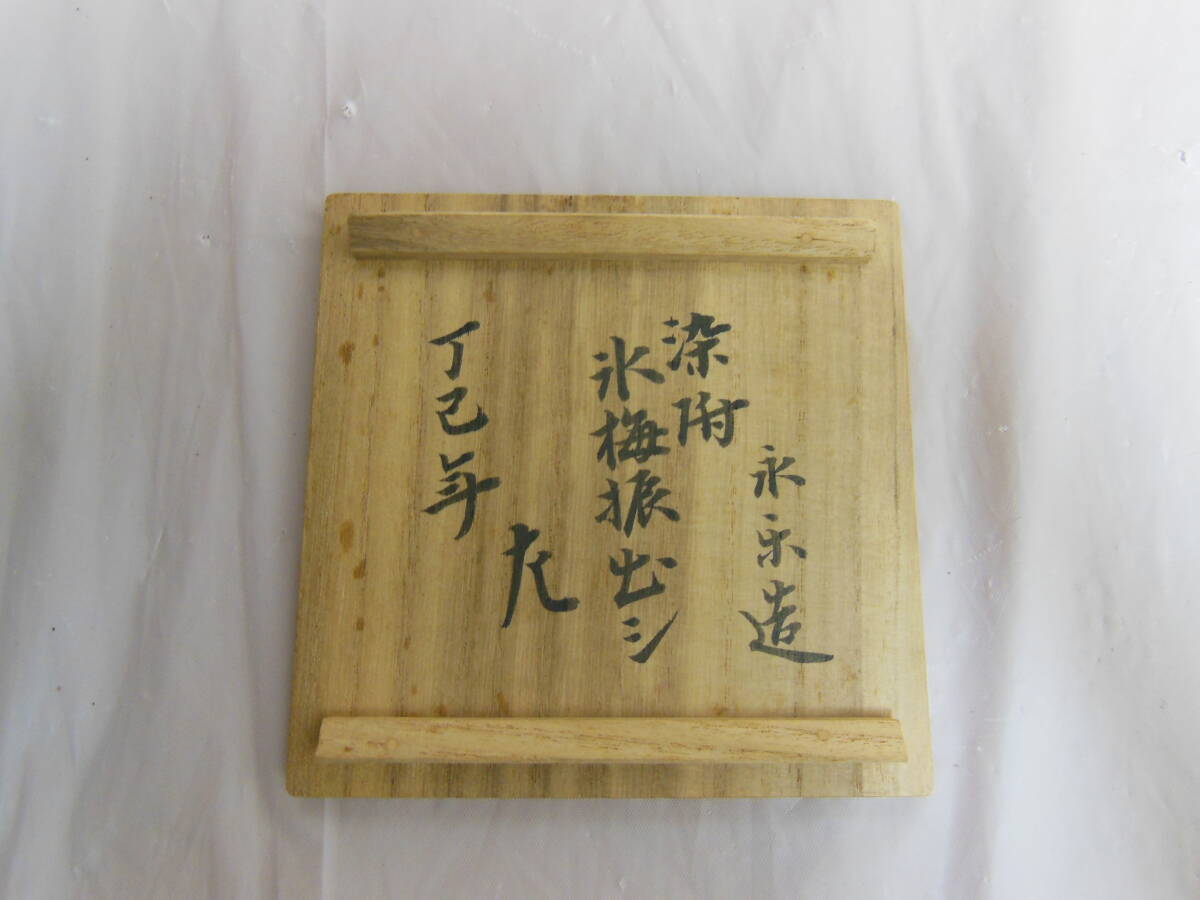 永楽造
染附
氷梅振出シ
左
丁巳年